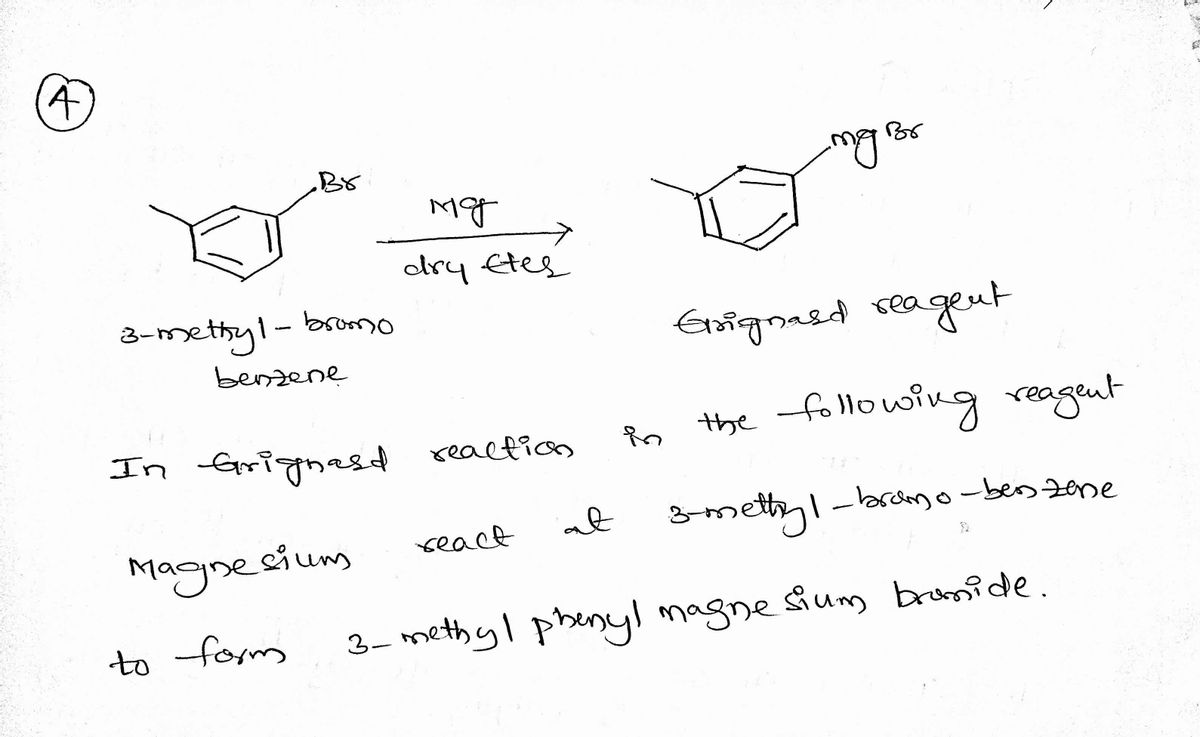 4
Br
Mg
dry Eter
3-methyl-bromo
benzene
mg Br
Grignard reagent
In Grignard reaction in the following reagent
Magnesium react at 3-methyl-bromo-benzene
to form 3-methyl phenyl magnesium bromide.